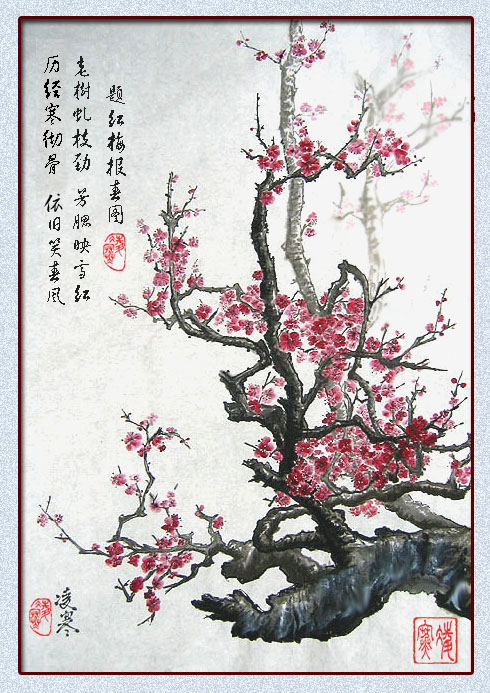 题红梅报春图
老樹虬枝劲 芳腮映雪红
历经寒彻骨 依旧笑春风
凌寒
凌寒